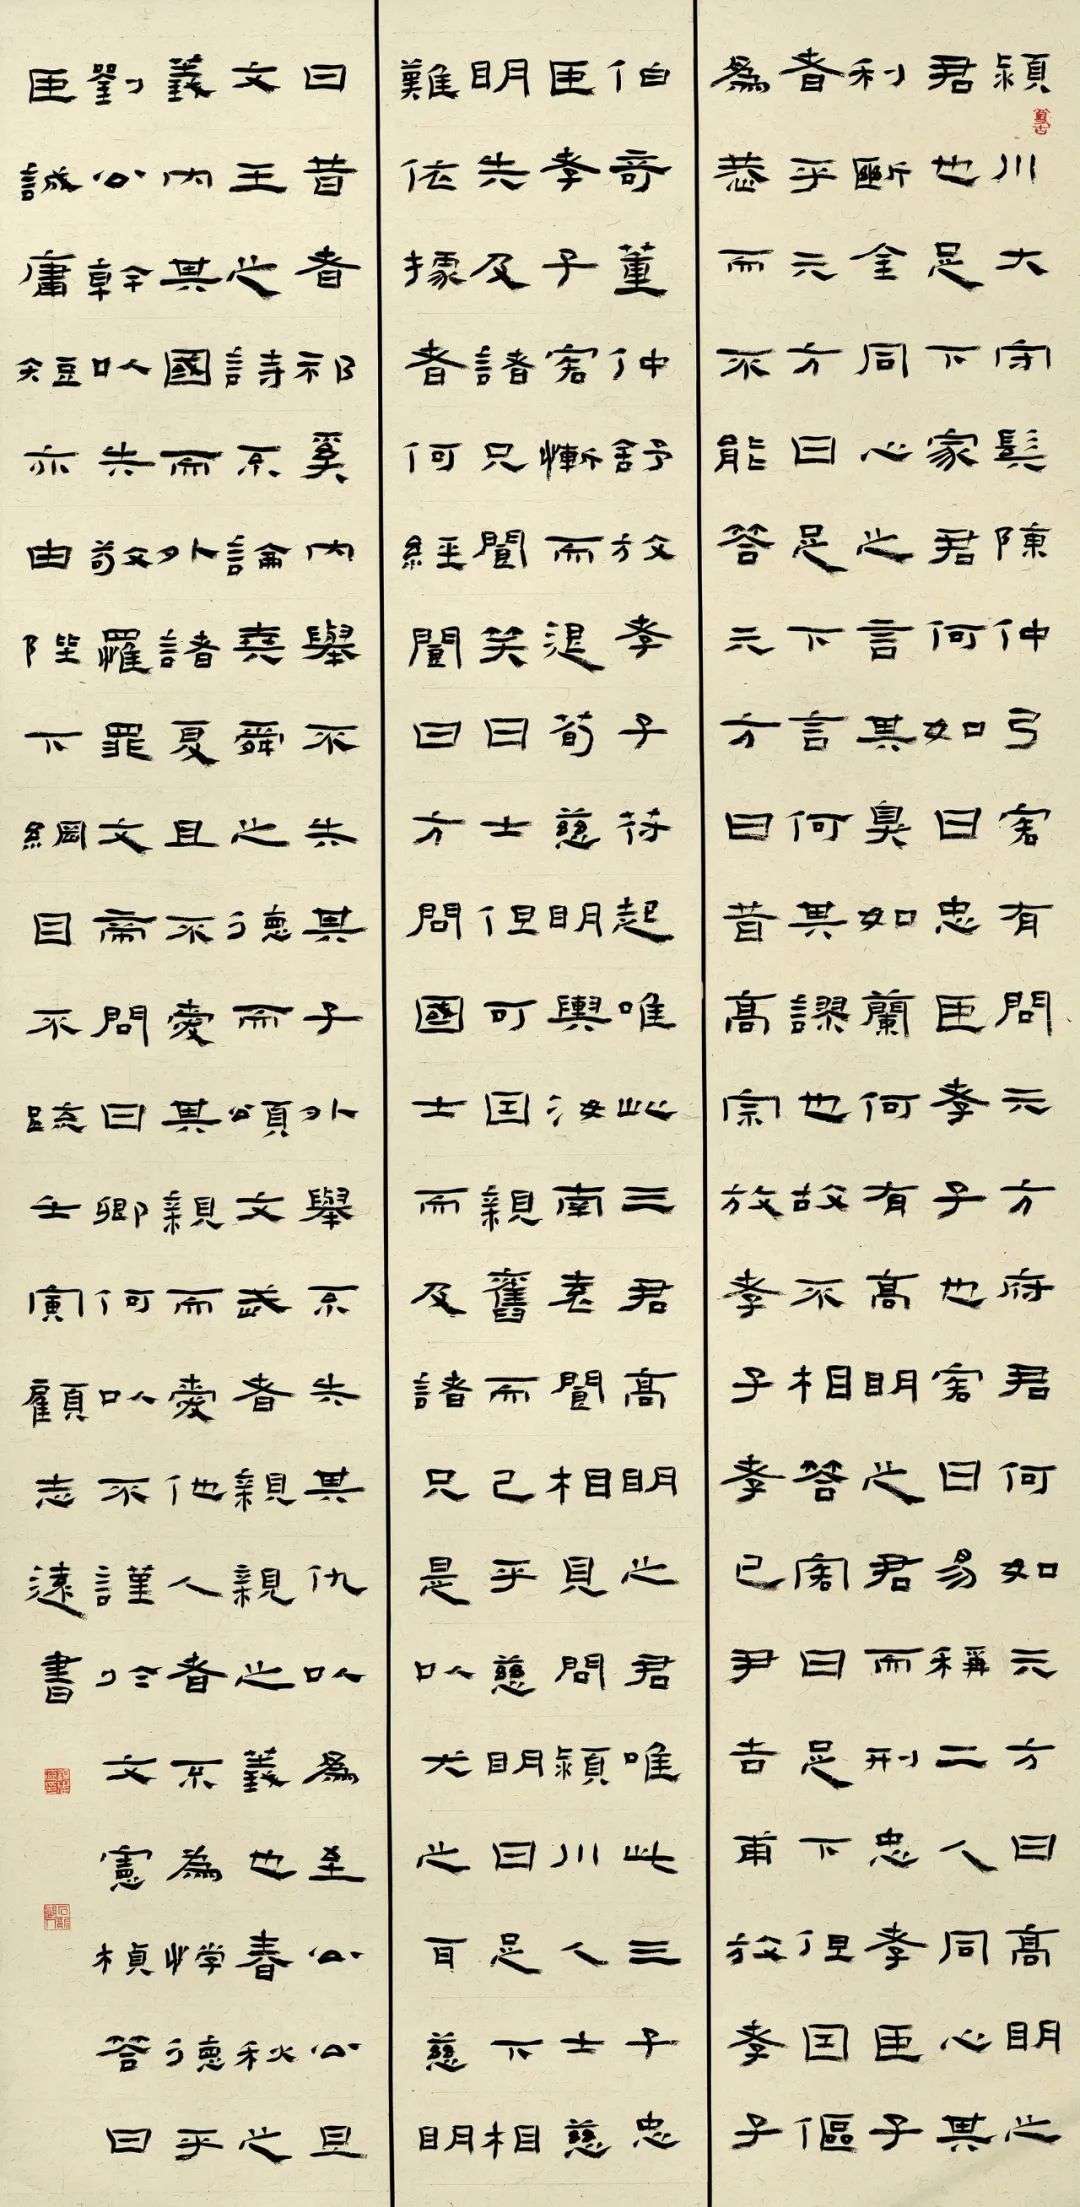 潁川大守髡陳仲弓客有問元方府君何如元方曰高明之
君也足下家君何如曰忠臣孝子也客曰易稱二人同心其
利斷金同心之言其臭如蘭何有高明之君而刑忠孝臣子
者乎元方曰足下言何其謬也故不相答客曰足下但因傴
為恭而不能答元方曰昔高宗放孝子孝已尹吉甫放孝子
伯奇董仲舒放孝子苻起唯此三君高明之君唯此三子忠
臣孝子客慚而退荀慈明與汝南袁閬相見問潁川人士慈
明先及諸兄閬笑曰士但可因親舊而已乎慈明曰足下相
難依據者何經閬曰方問國士而及諸兄是以尤之耳慈明
曰昔者祁奚內舉不失其子外舉不失其仇以為至公公旦
文王之詩不論堯舜之德而頌文武者親親之義也春秋之
義內其國而外諸夏且不愛其親而愛他人者不為悖德乎
劉公幹以失敬罹罪文帝問曰卿何以不謹於文憲楨答曰
臣誠庸短亦由陛下網目不疏壬寅顧志遠書